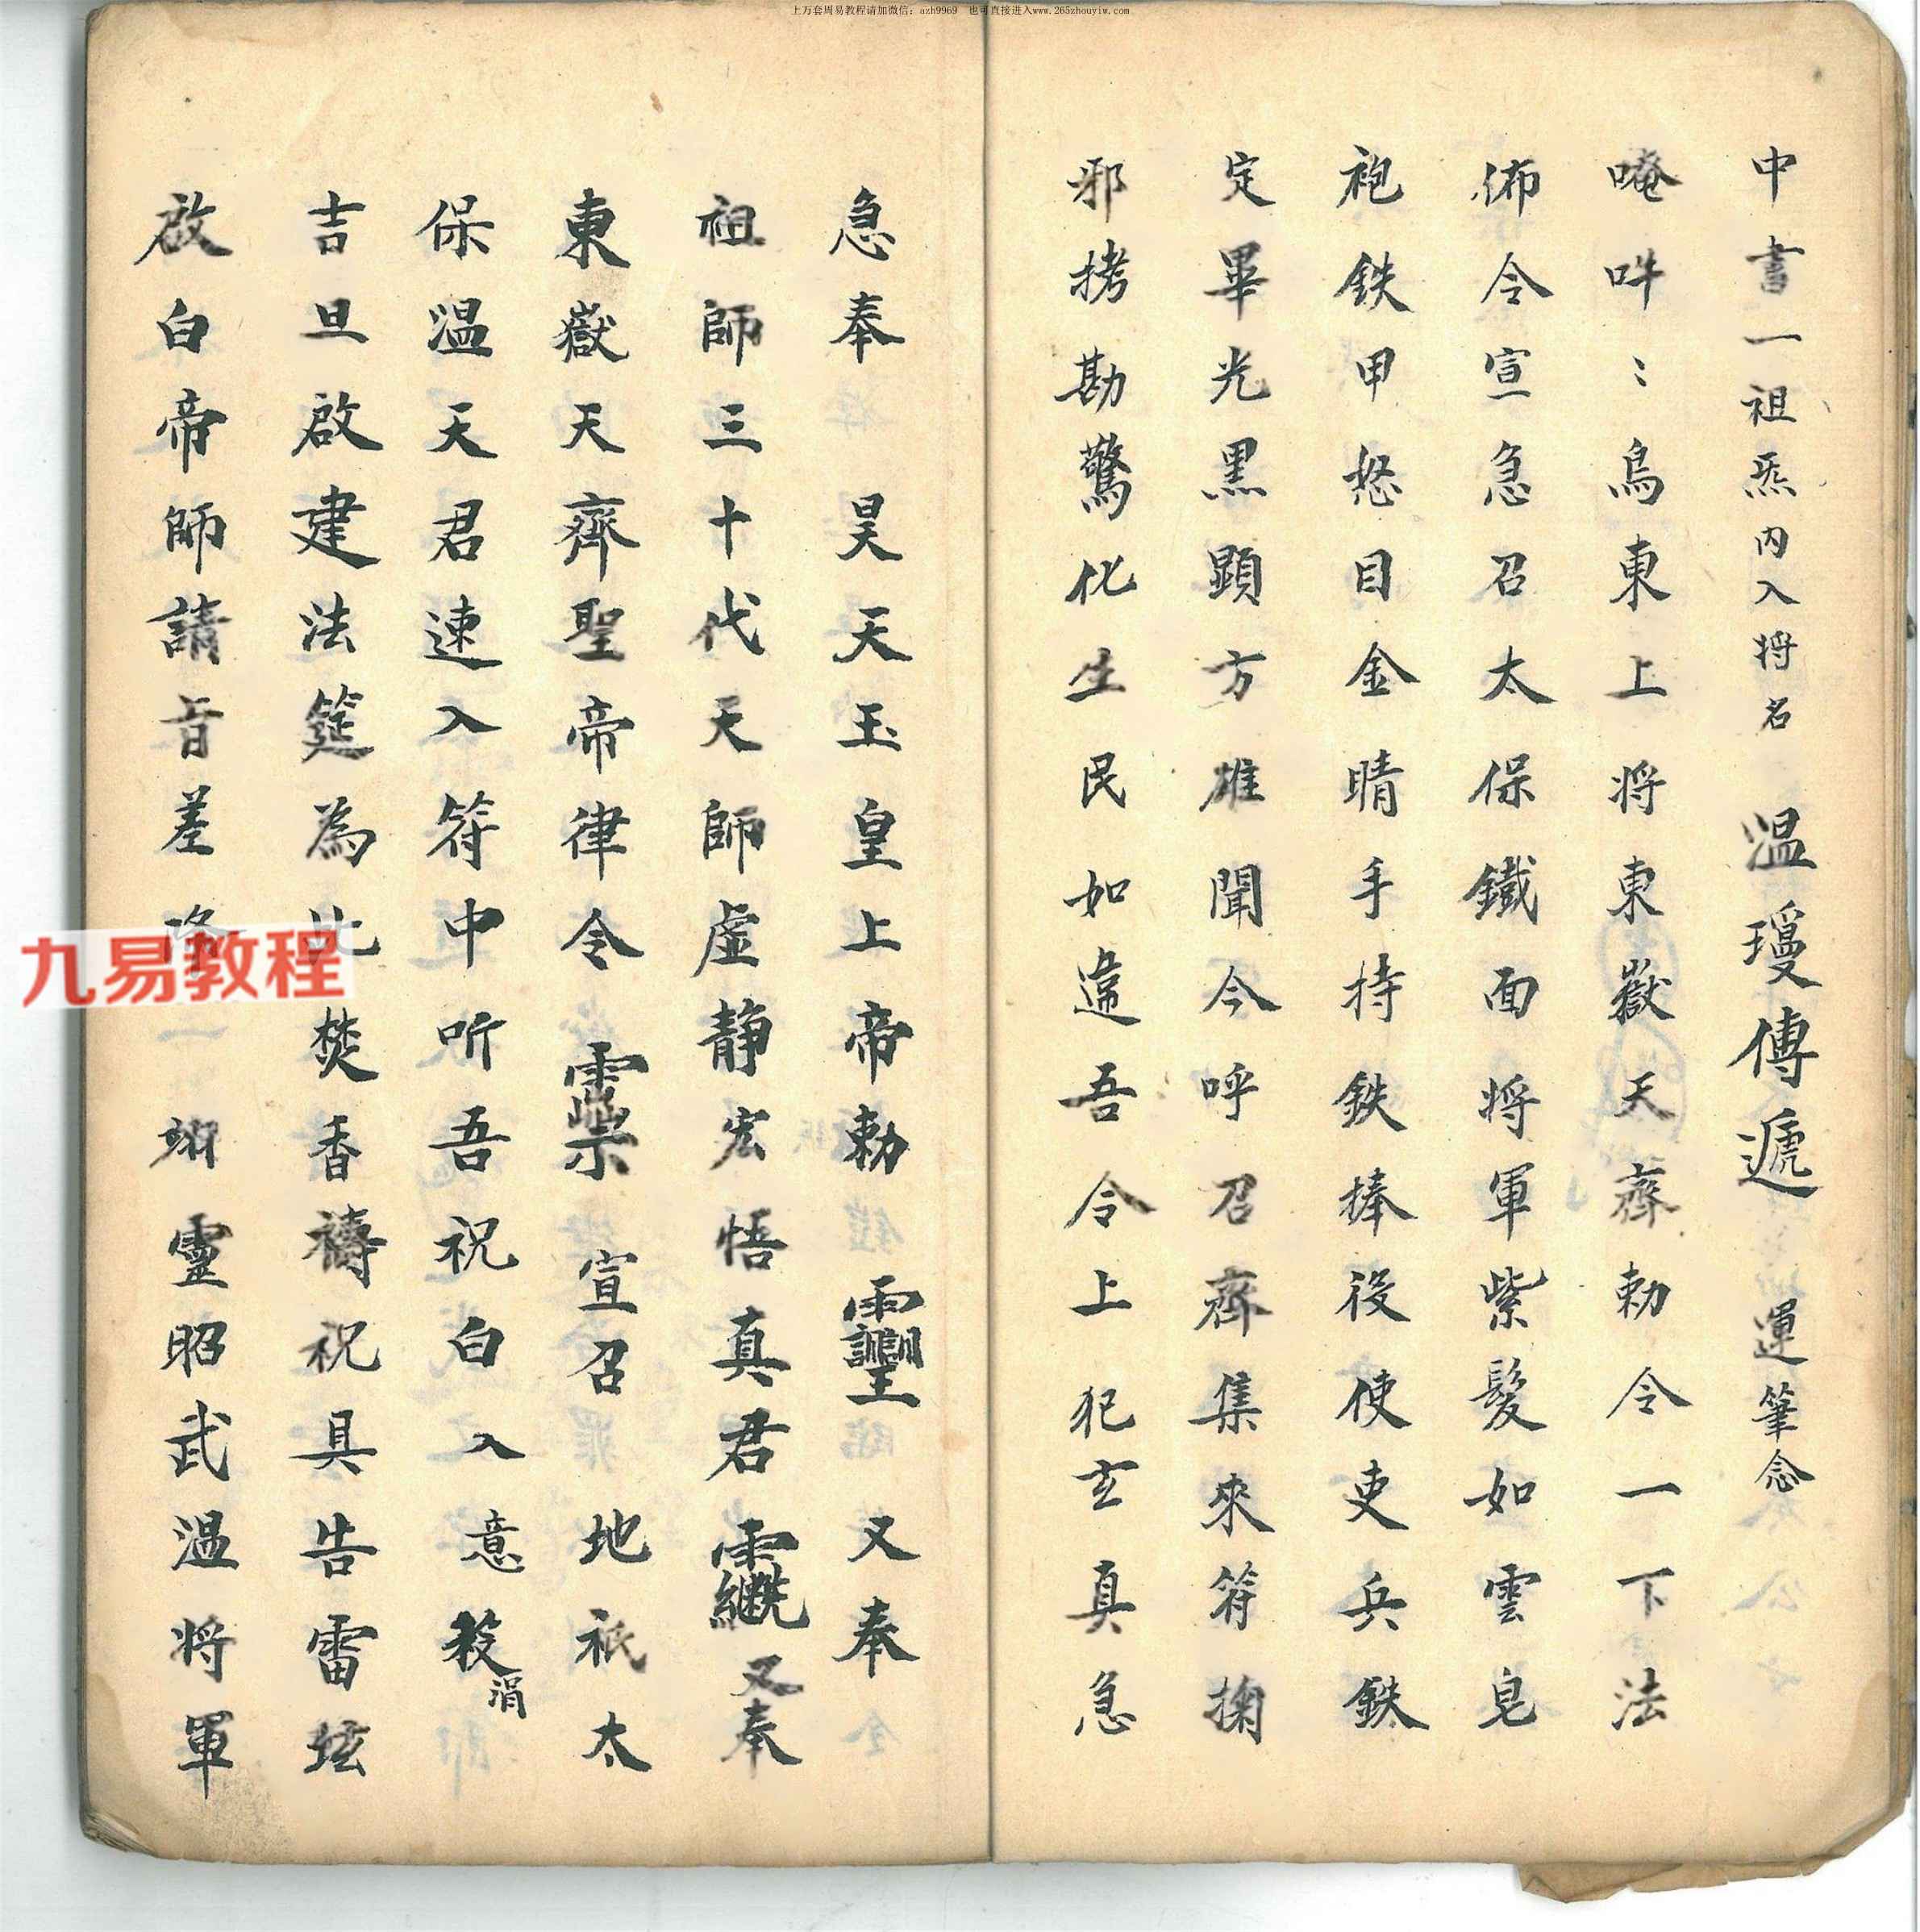 上万套周易教程请加微信：azh9969　也可直接进入www.265zhouyiw.com
中書一祖炁内入将名　温瓊傳遞　運筆念
唵吽〻烏東上将東嶽天齊勅令一下法
佈令宣急召太保鐵面将軍紫髮如雲皂
袍鉄甲怒目金睛手持鉄捧役使吏兵鉄
定畢光黒顕方雄聞今呼召齊集來符掬
邪拷勘驚化生民如違吾令上犯玄真急
急奉　昊天玉皇上帝勅　又奉
祖師三十代天師虚静宏悟真君　又奉
東嶽天齊聖帝律令　宣召　地祇太
保温天君速入符中听吾祝白入意殺涓
吉旦啟建法筵為此焚香禱祝具告雷坛
啟白帝師請旨差降　翊靈昭武温将軍
九易教程